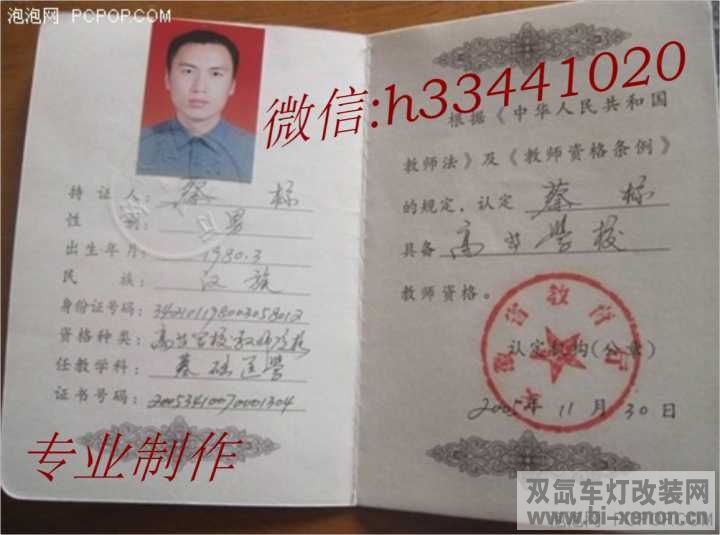 泡泡网 PCPOP.COM
微信:h33441020
持证人:蔡标
性别:男
出生年月:1980.3
民族:汉族
身份证号码:342101198003058012
资格种类:高等学校教师资格
任教学科:基础医学
证书号码:20053410070001304
专业制作
根据《中华人民共和国
教师法》及《教师资格条例》
的规定,认定 蔡标
具备 高等学校
教师资格。
省教育厅
认定机构(公章)
2005年11月30日
双氙车灯改装网
www.bi-xenon.cn
泡泡网 PCPOP.COM